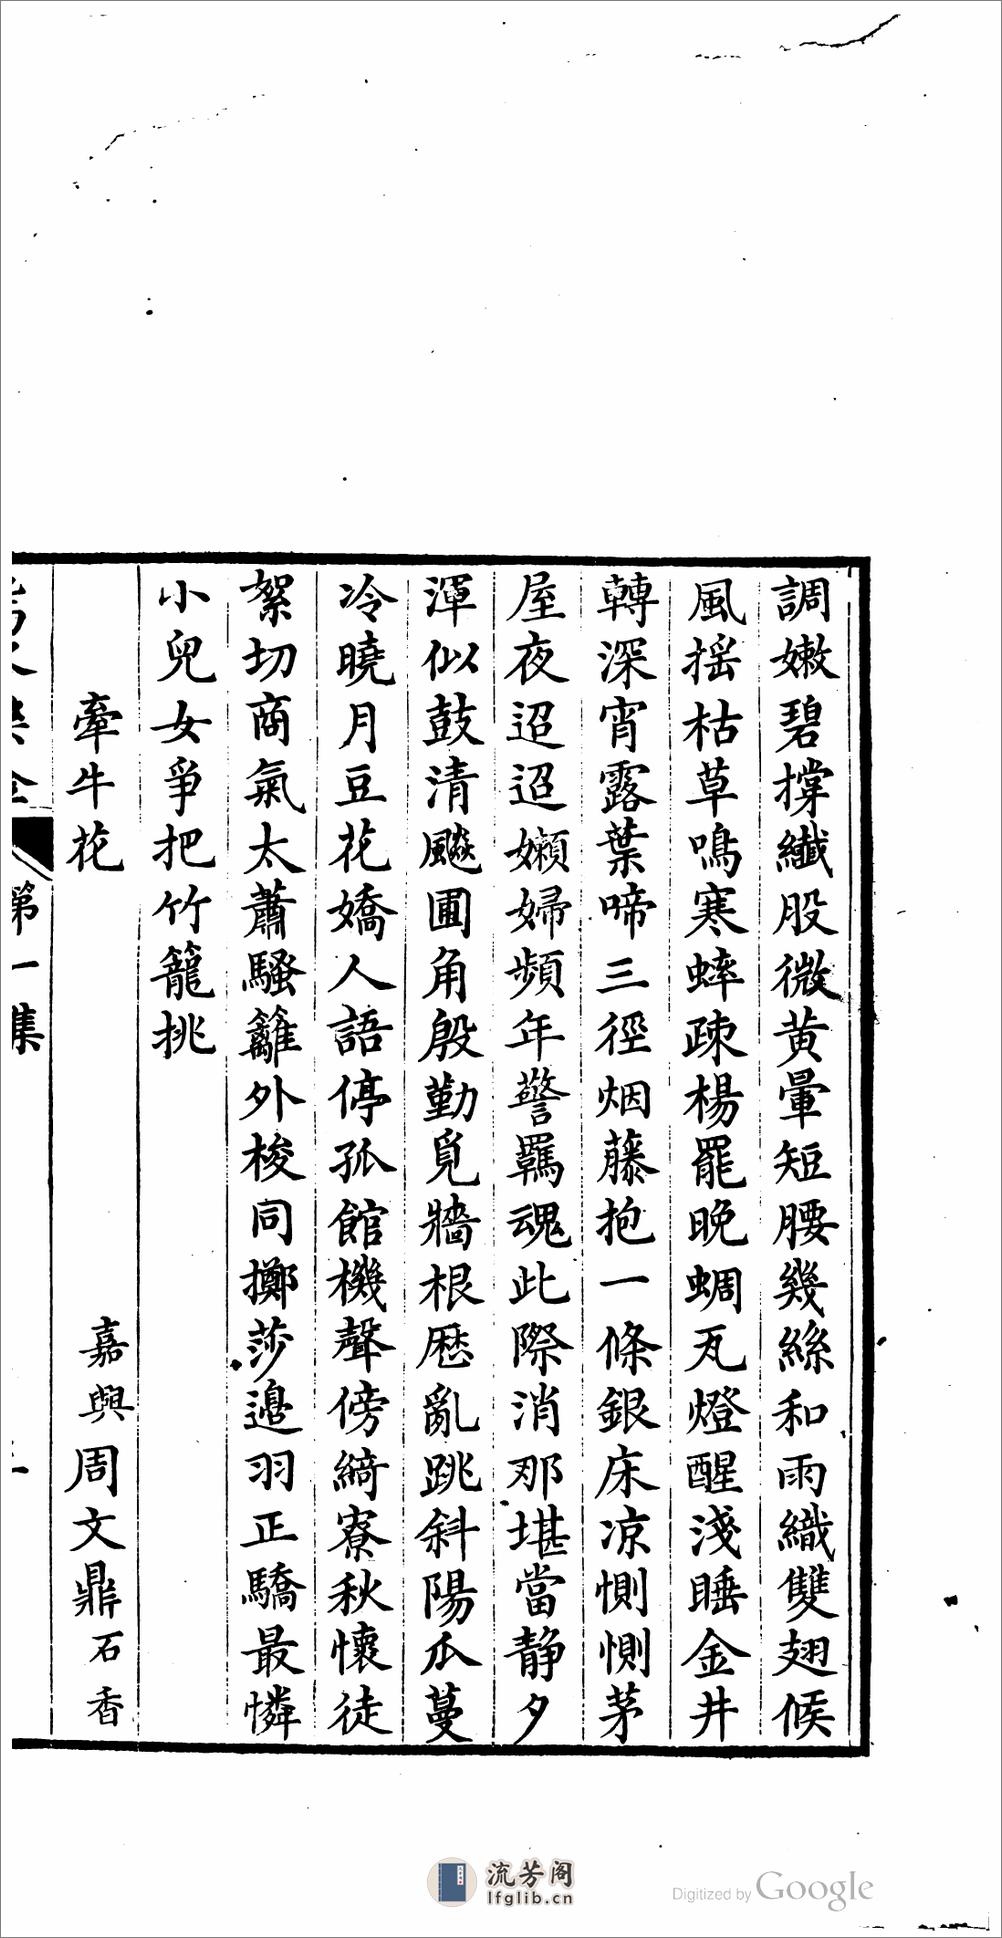 調嫩碧撐纖股微黄暈短腰幾絲和雨織雙翅候
風揺枯草鳴寒蟀疎楊罷晚蜩瓦燈醒淺睡金井
轉深宵露葉啼三徑烟藤抱一條銀床凉惻惻茅
屋夜迢迢嬾婦頻年警羈魂此際消那堪當静夕
渾似鼓清飈圃角殷勤覓牆根厯亂跳斜陽瓜蔓
冷曉月豆花嬌人語停孤館機聲傍綺寮秋懷徒
絮切商氣太蕭騷籬外梭同擲莎邉羽正驕最憐
小兒女爭把竹籠挑
牽牛花 嘉興周文鼎石香
第一集
流芳阁
lfglib.cn
Digitized by Google